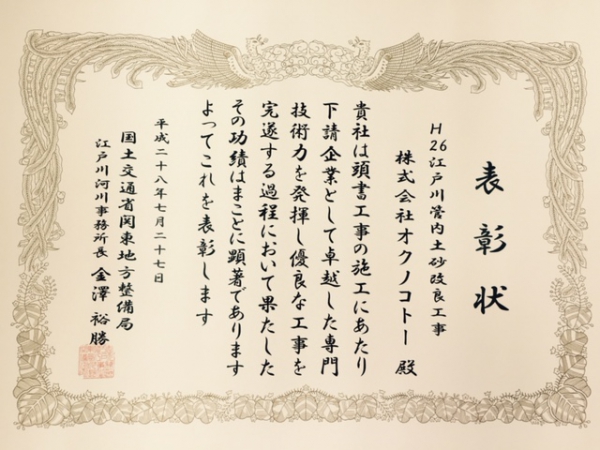 表彰状
H26江戸川管内土砂改良工事
株式会社オクノコトー 殿
貴社は頭書工事の施工にあたり
下請企業として卓越した専門
技術力を発揮し優良な工事を
完遂する過程において果たした
その功績はまことに顕著であります
よってこれを表彰します
平成二十八年七月二十七日
国土交通省関東地方整備局
江戸川河川事務所長 金澤裕勝